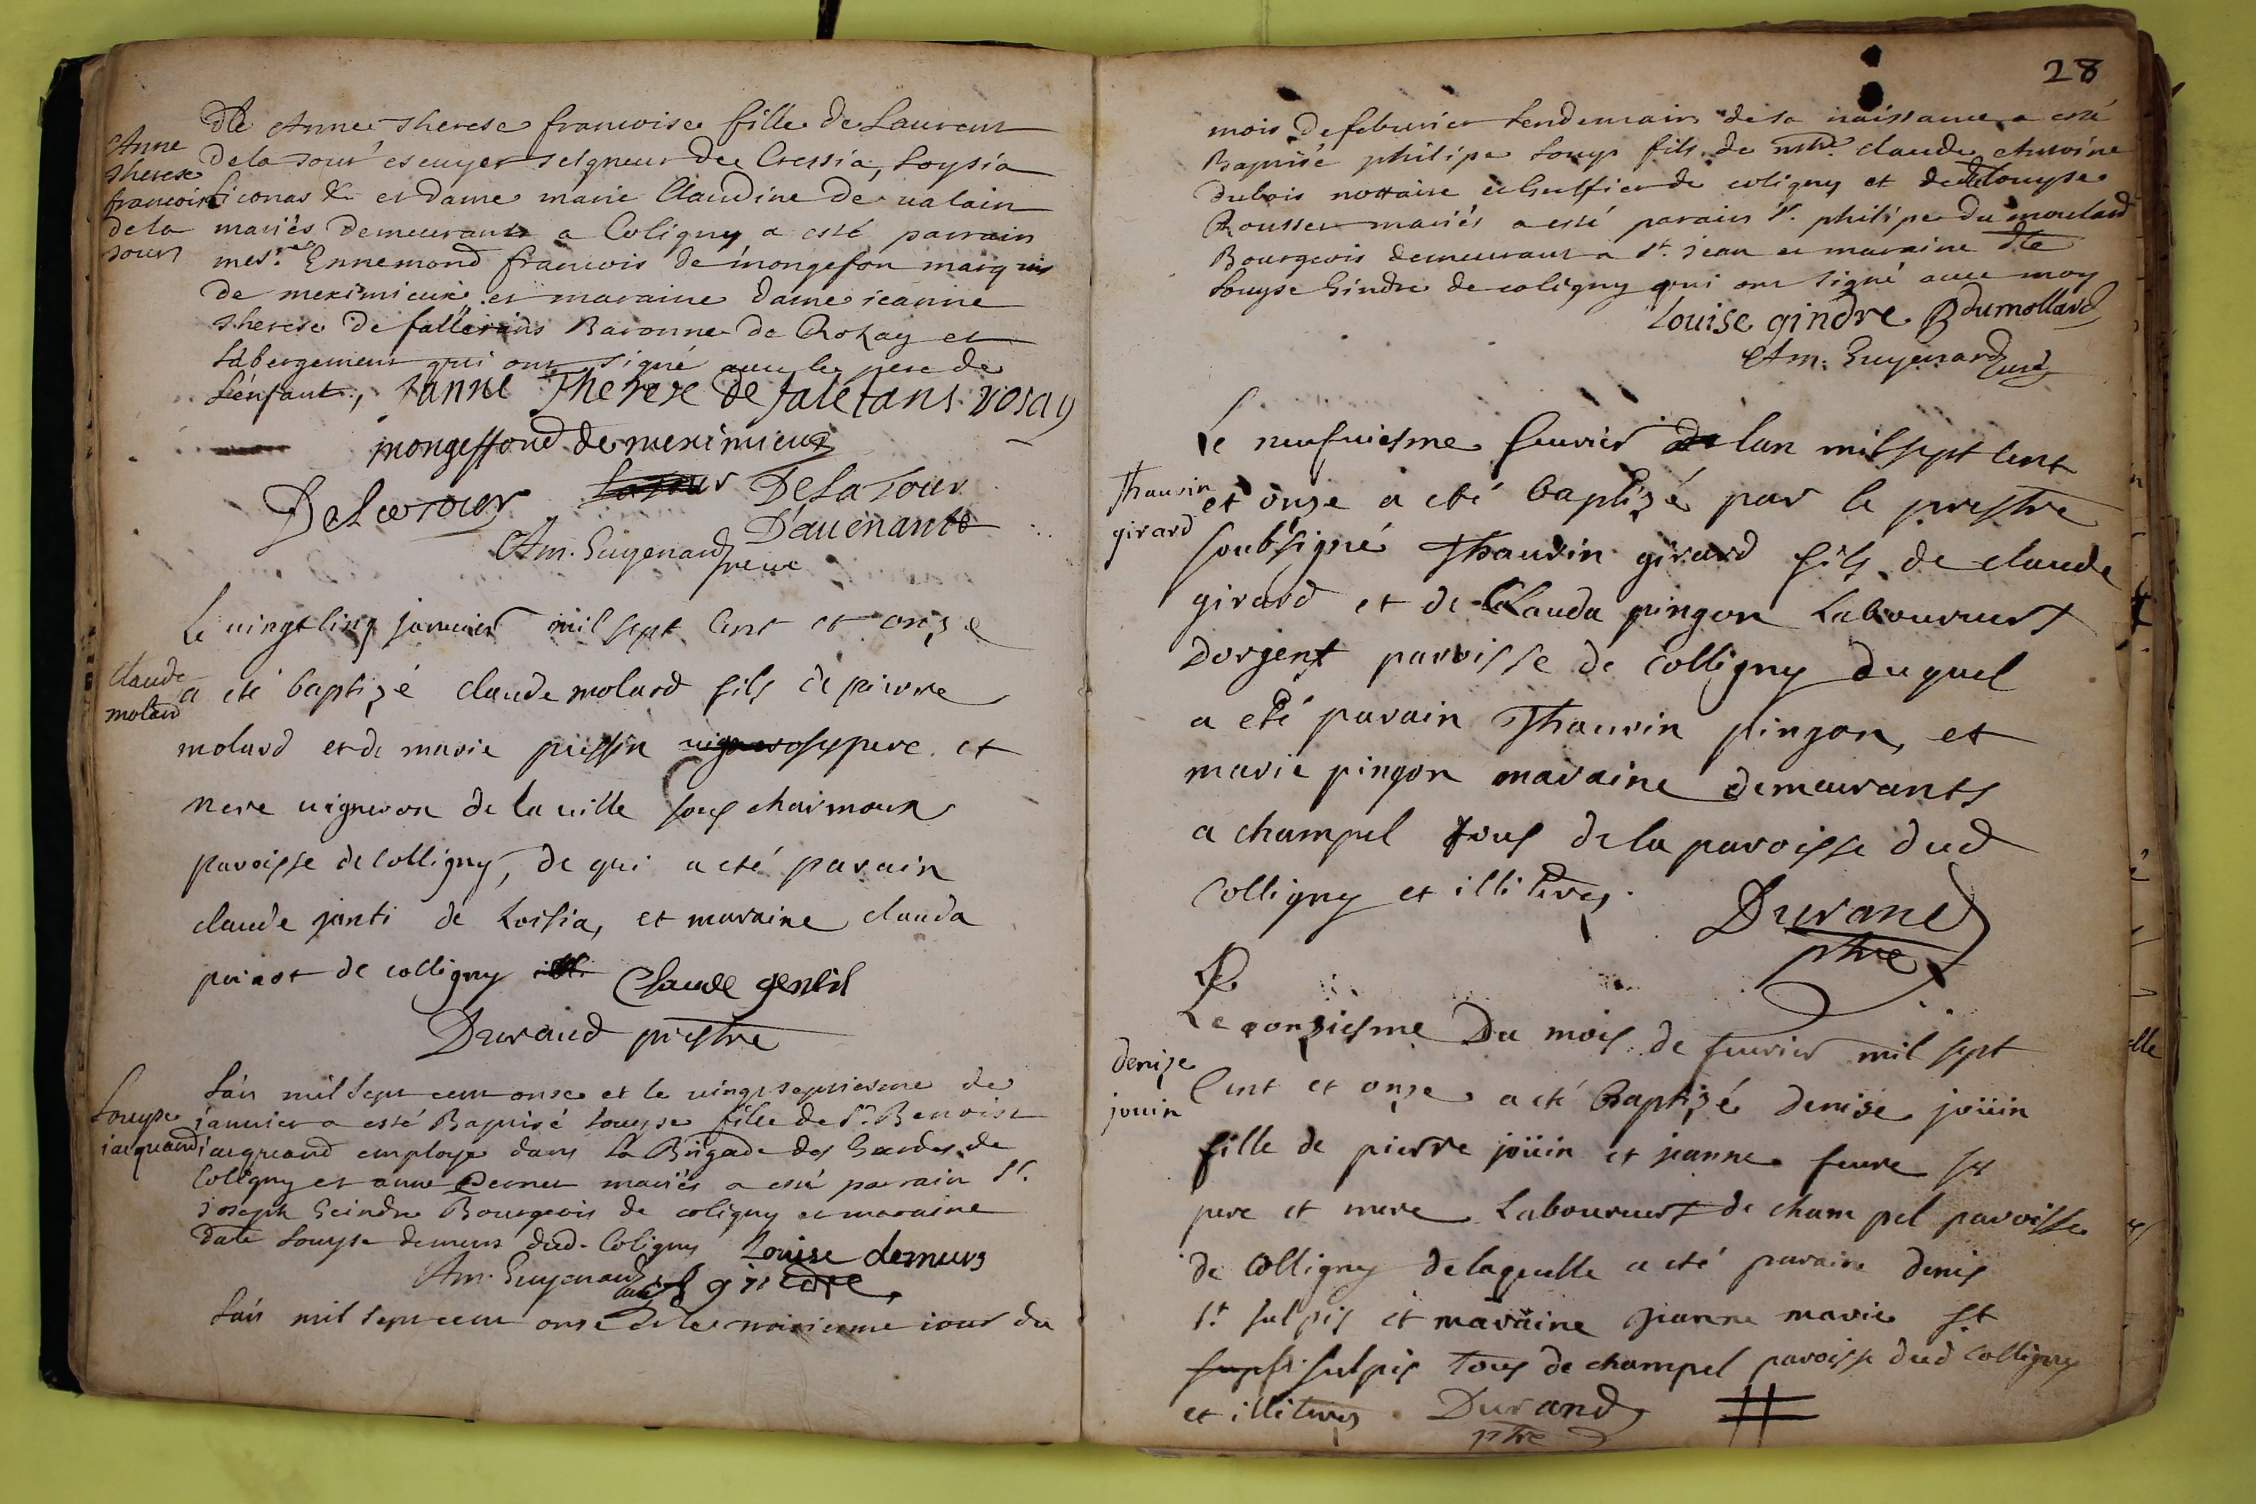 Anne
therese
francoise
de la
tour
dlle Anne therese francoise fille de Laurent
de la tour escuyer seigneur de Cressia, Loysia
ficonas &c et dame marie Claudine de ualain
mariés demeurants a Coligny a esté parrain
mesr. Ennemond francois de mongefon marquis
de meximieux et maraine dame ieanne
therese de fallerans Baronne de Rozay et
Labergement qui ont signé auec le pere de
L'enfant, Janne Therese de faletans rosay
mongeffond de meximieux
DeLatour DeLaTour
D'auenante
Am. Guyenard
Le uingt cinq januier mil sept cent et onze
Claude
molard
a eté baptizé claude molard fils de pierre
molard et de marie pressin ses pere et
mere uigneron de la uille sous charmoux
paroisse de Colligny, de qui a eté parain
claude janti de Loisia, et maraine clauda
de colligny Claude gentil
Durand prestre
Louyse
iacquand
L'an mil sept cent onse et le uingt septiesme de
januier a esté Baptisé Louyse fille de Sr. Benoist
iacquand employe dans La Brigade des Gardes de
Coligny et anne Pernet mariés a esté parrain Sr.
joseph Geindre Bourgeois de coligny et maraine
dlle Louyse demeurs dud. Coligny Louise demurs
Am. Guyenard gindre
L'an mil sept cent onse et le troisieme iour du
28
mois de feburier Lendemain de sa naissance a esté
Baptisé philipe Louys fils de mtre. claude Antoine
dubois nottaire et Greffier de coligny et de dlle Louyse
Rousset mariés a esté parain Sr. philipe du moulard
Bourgeois demeurant a St. jean et maraine dlle
Louyse Gindre de coligny qui ont signé auec moy
Louise gindre P dumollard
Am. Guyenard curé
Le neufuiesme feurier de lan mil sept cent
Thaurin
girard
et onze a eté baptizé par le prestre
soubsigné Thaurin girard fils de claude
girard et de Clauda pingon Laboureurs
dorgent paroisse de Colligny duquel
a eté parain Thaurin pingon, et
marie pingon maraine demeurants
a champel tous de la paroisse dud
Colligny et illiteres. Durand
ptre
Le
Le onziesme Du mois de feurier mil sept
denize
jouin
Cent et onze a eté Baptizé denise joüin
fille de pierre joüin et janne feure ses
pere et mere Laboureurs de champel paroisse
de Colligny de laquelle a eté parain denis
St sulpis et maraine Jeanne marie St
sulpis tous de champel paroisse dud Colligny
et illiteres Durand
ptre